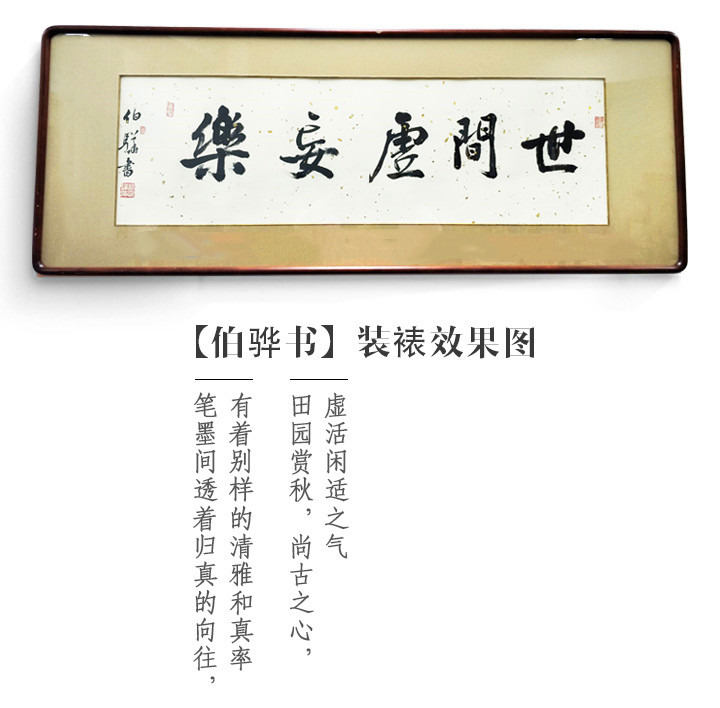 世間虛妄樂
伯驊書
【伯骅书】装裱效果图
笔墨间透着归真的向往，
有着别样的清雅和真率
田园赏秋，尚古之心，
虚活闲适之气